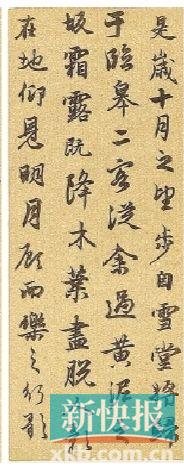 是歲十月之望步自雪堂將歸
于臨皋二客從余過黃泥之
坂霜露既降木葉盡脫人影
在地仰見明月顧而樂之行歌
新快报
xkb.com.cn